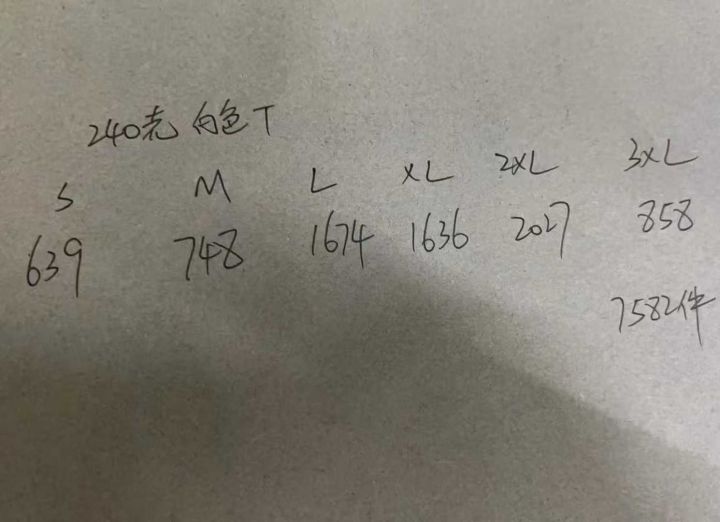 240克 白色T
S M L XL 2XL 3XL
639 748 1674 1636 2027 858
7582件